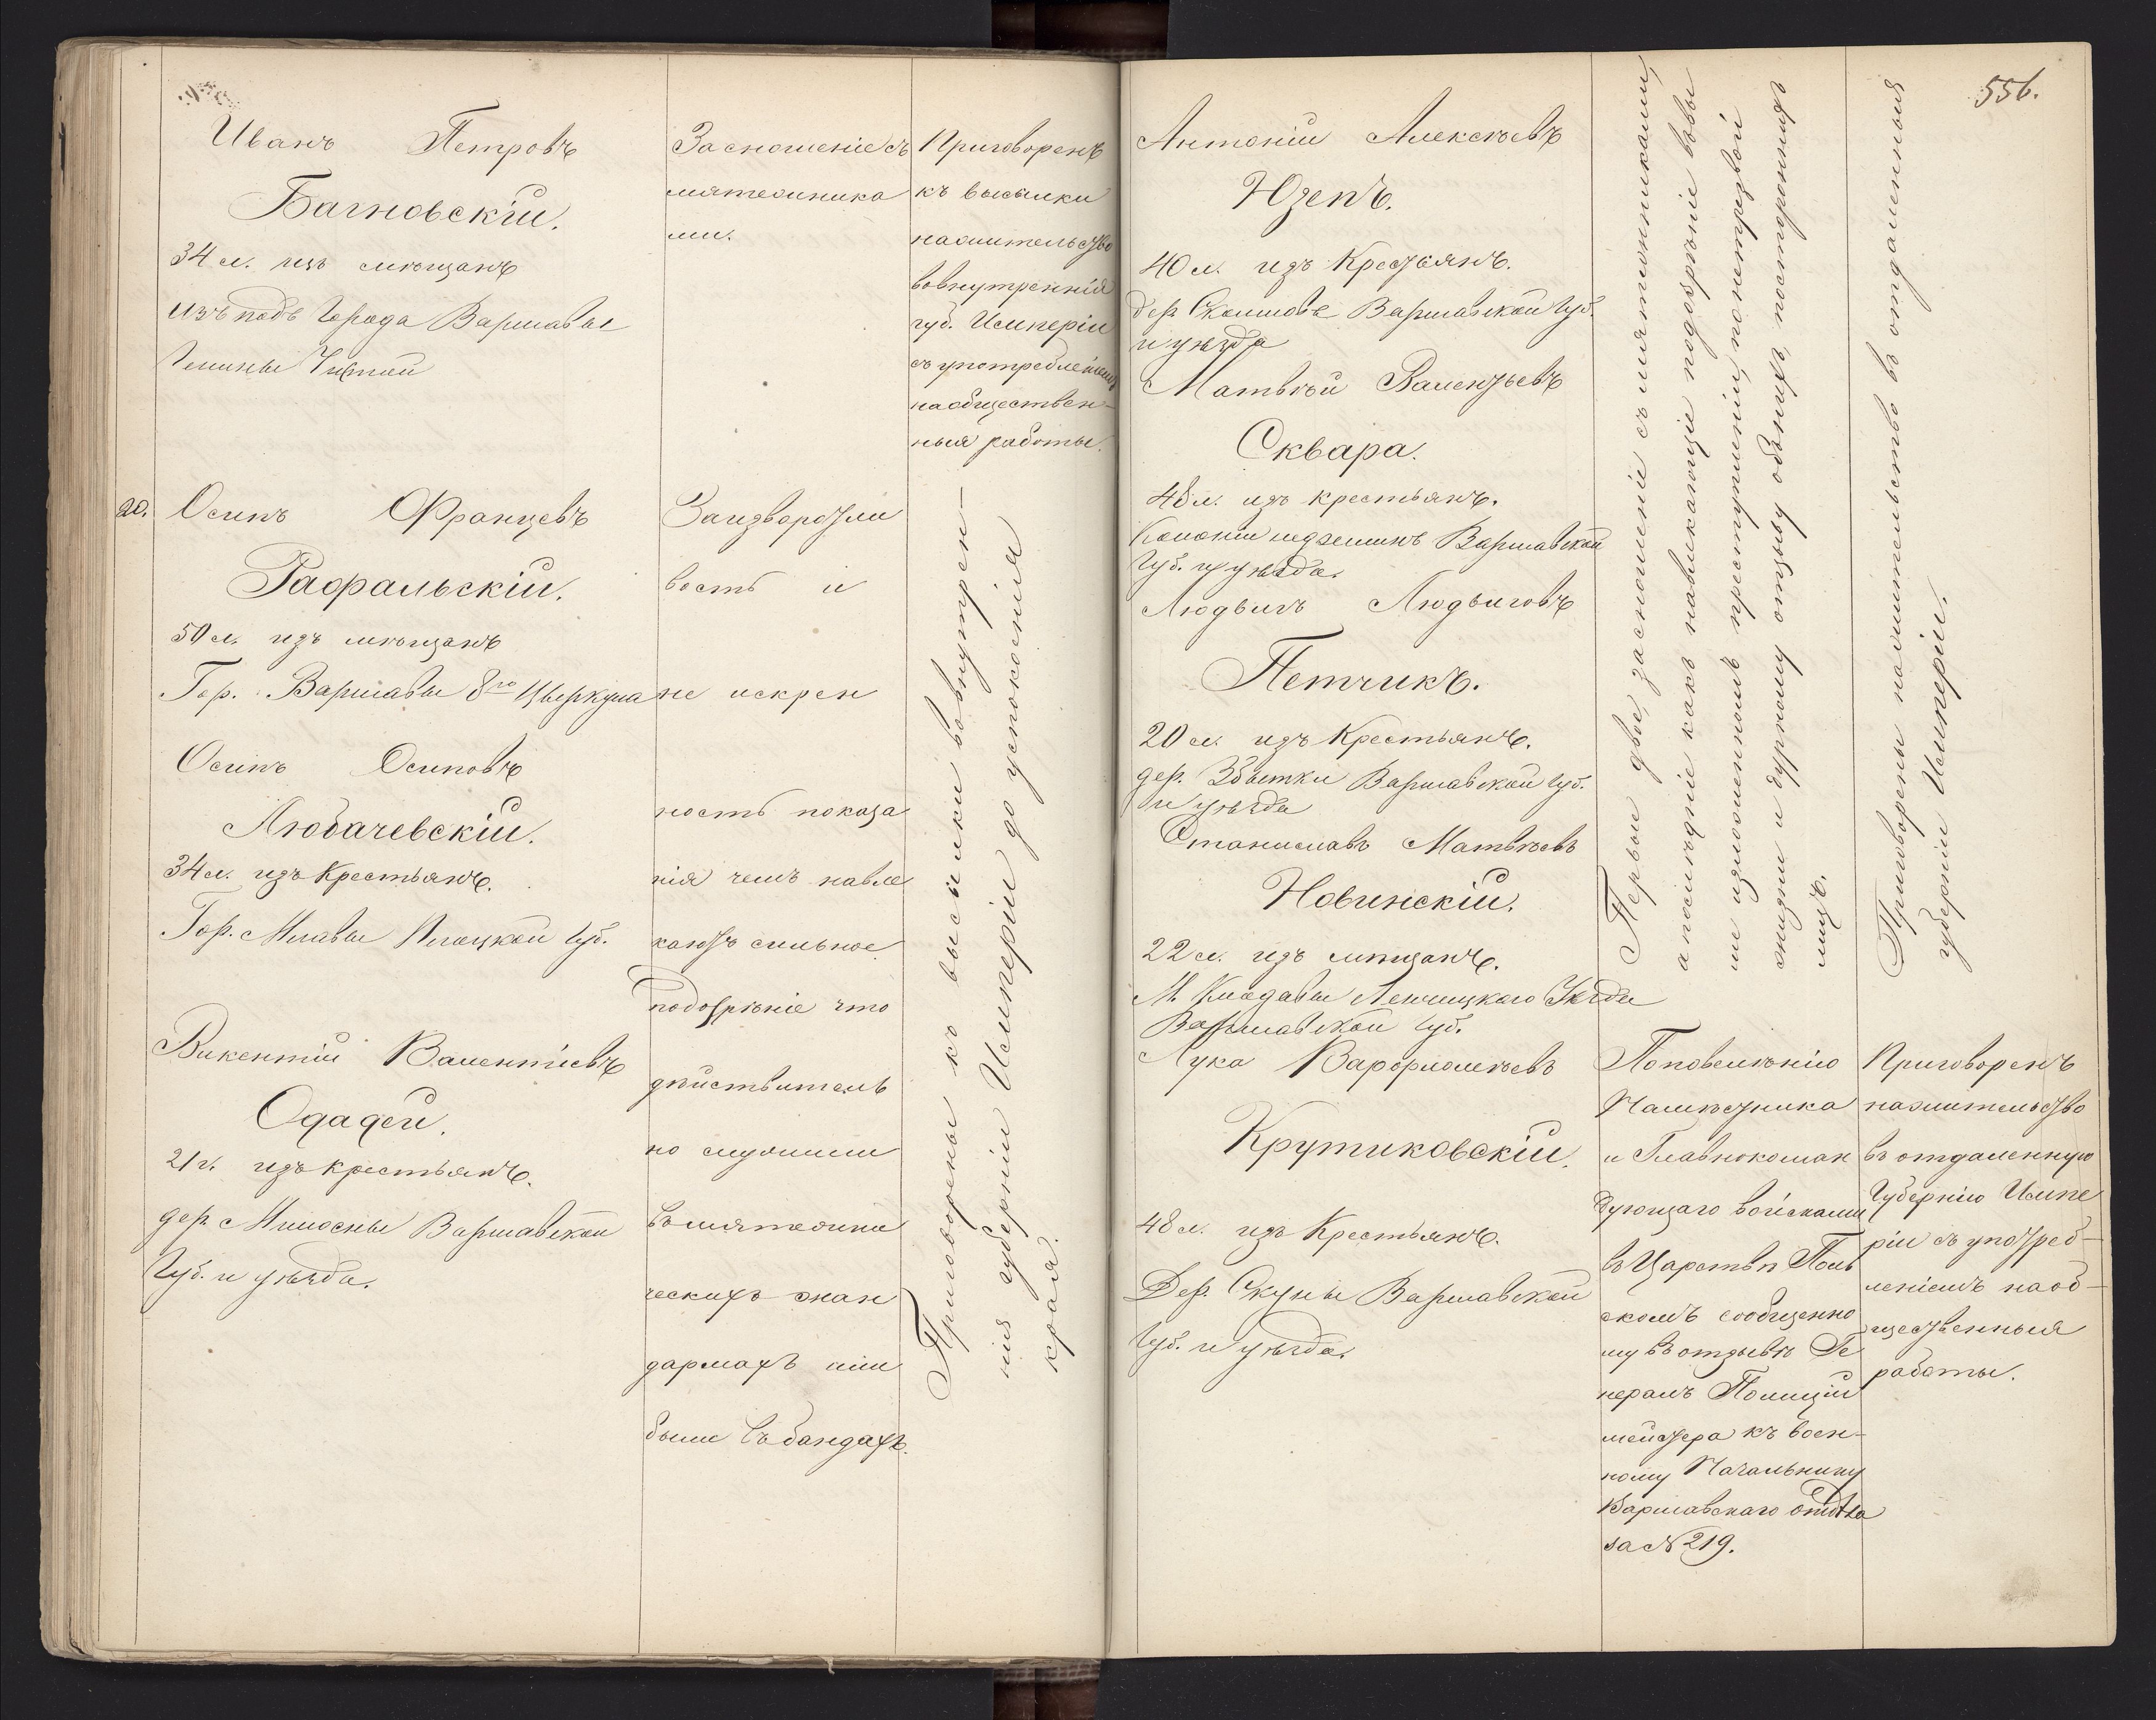 Иванъ Петровъ
Багновскій.
34 л. изъ мѣщанъ
изъ подъ Города Варшавы
Гмины Чистой
За сношеніе съ
мятежника
ми.
Приговоренъ
къ высылки
на жительство
во внутреннія
губ. Имперіи
съ употребленіемъ
на обществен-
ныя работы.
20.
Осипъ Францевъ
Рафальскій.
50 л. изъ мѣщанъ
Гор. Варшавы 8го Цыркула
Осипъ Осиповъ
Любачевскій.
34 л. изъ Крестьянъ.
Гор. Млавы Плоцкой Губ.
Викентій Валентіевъ
21 г. изъ крестьянъ.
дер. Милосны Варшавской
Губ. и уѣзда.
За изворотли
вость и
не искрен
ность показа
нія чемъ навле
каютъ сильное
подозрѣніе что
дѣйствитель
но служили
въ мятежни
ческихъ жан
дармахъ или
были въ бандахъ.
Приговорены къ высылки во внутрен-
нія губерніи Имперіи до успокоенія
края.
556.
Антоній Алексѣевъ
Юзепъ.
40 л. изъ Крестьянъ.
дер. Варшавской Губ.
и уѣзда
Матвѣй Валентьевъ
Сквара.
48 л. изъ крестьянъ.
Колоніи Варшавской
Губ. и уѣзда.
Людвигъ Людвиговъ
Петчикъ.
20 л. изъ Крестьянъ.
дер. Збытки Варшавской губ.
и уѣзда
Станиславъ Матвѣевъ
Новинскій.
22 л. изъ мѣщанъ.
М. Клодавы Ленчицкаго Уѣзда
Варшавской Губ.
Лука Варфоломѣевъ
Крутиковскій.
48 л. изъ Крестьянъ.
Дер. Окуны Варшавской
Губ. и уѣзда.
Первыи двое, за сношеніе съ мятежниками,
а послѣдніе какъ навлекающіе подозрѣніе въ вы
ше изложенномъ преступленіи, по нетрезвой
жизни и дурному отзыву объ нихъ постороннихъ
лицъ.
Приговорены на жительство въ отдаленныя
губерніи Имперіи.
По повелѣнію
Намѣстника
и Главнокоман
дующаго войсками
въ Царствѣ Поль
скомъ сообщенно
му въ отзывѣ Ге
нералъ Полиціи
мейстера къ воен-
ному Начальнику
Варшавскаго отдѣла
за № 219.
Приговоренъ
на жительство
въ отдаленную
Губернію Импе
ріи съ употреб-
леніемъ на об-
щественныя
работы.